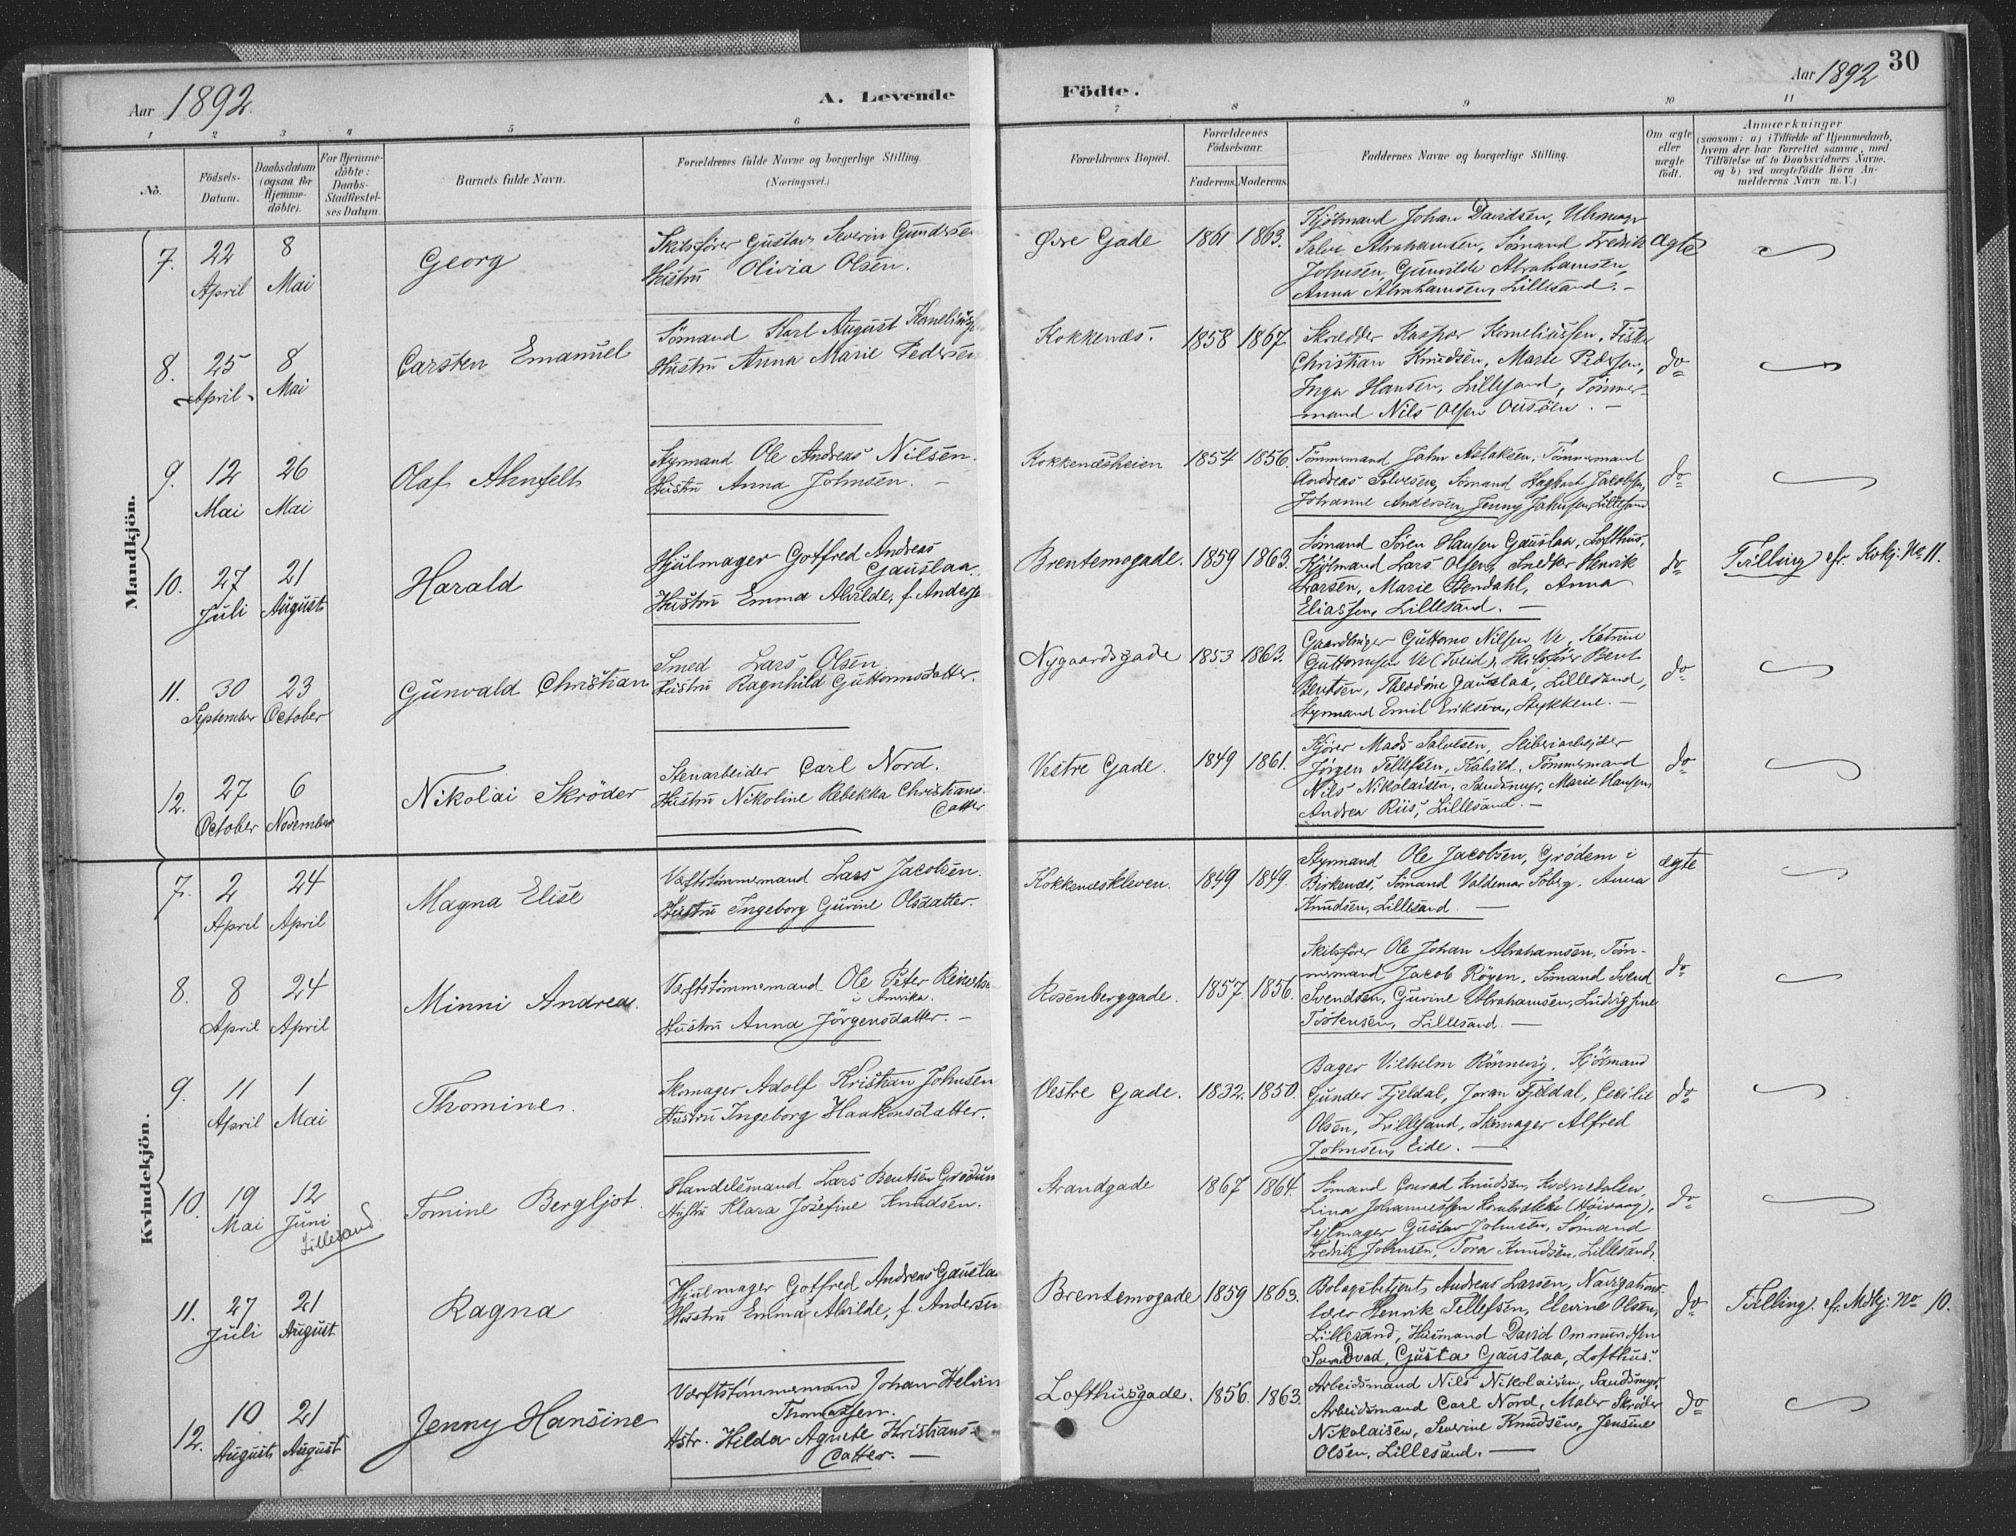 Aar 1892.
A. Levende
Födte.
Aar 1892
30
1 2 3 4 5 6 7 8 9 10 11
No.
Födsels-
Datum.
Daabsdatum
(ogsaa for
Hjemme-
döbte).
For Hjemme-
döbte:
Daabs-
Stadfæstel-
ses Datum.
Barnets fulde Navn.
Forældrenes fulde Navne og borgerlige Stilling.
(Næringsvei.)
Forældrenes Bopæl.
Forældrenes
Födselsaar.
Faderens. Moderens.
Faddernes Navne og borgerlige Stilling.
Om ægte
eller
uægte
födt.
Anmærkninger
(saasom: a) i Tilfælde af Hjemmedaab,
hvem der har forrettet samme, med
Tilföielse af to Daabsvidners Navne.
og b) ved uægtefödte Börn An-
melderens Navn m. V.)
Mandkjön.
7.
22
April
8
Mai
Georg
Skibsfører Gustav Severin Gundersen
Hustru Olivia Olsen.
Øvre Gade
1861 1863.
Kjølmand Johan Davidsen,
Salve Abrahamsen, Sømand Fredrik
Johnsen, Gunvilde Abrahamsen,
Anna Abrahamsen, Lillesand. -
ægte
8.
25
April
8
Mai
Carsten Emanuel
Sømand Karl August
Hustru Anna Marie Pedersen
Kokkenæs.
1858 1867.
Skrædder Kaspar Korneliussen, Fisker
Christian Knudsen, Marte Pedersen,
Inga Hansen, Lillesand, Tømmer-
mand Nils Olsen . -
do
9.
12
Mai
26
Mai
Olaf Ahnfelt
Styrmand Ole Andreas Nilsen.
Hustru Anna Johnsen. -
Kokkenæsheien
1854 1856.
Tømmermand John Aslaksen, Tømmermand
Andreas Salvesen, Sømand Hagbart Jacobsen,
Johanne Andersen, Jenny Johnsen, Lillesand
do
10.
27
Juli
21
August
Harald
Hjulmager Gotfred Andreas
Gauslaa.
Hustru Emma Alvilde, f. Andersen
Brentemogade.
1859 1863.
Sømand Søren Hansen Gauslaa, Lofthus,
Kjølmand Lars Olsen, Snedker Henrik
Larsen, Marie Stendahl, Anna
Eliassen, Lillesand. -
do
Tvilling cfr. Kvkj. No 11.
11.
30
September
23
October
Gunvald Christian
Smed Lars Olsen
Hustru Ragnhild Guttormsdatter.
Nygaardsgade
1853 1863.
Gaardbruger Guttorm Nilsen Ve, Katrine
Guttormsen Ve (Tveid), Skibsfører Bent
Bentsen, Theodine Gauslaa, Lillesand,
Styrmand Emil Eriksen, Stykkene. -
do
12.
27
October
6
November
Nikolai Skrøder
Stenarbeider Carl Nord.
Hustru Nikoline Rebekka Christians-
datter
Vestre Gade.
1849 1861.
Kjører Mads Salvesen,
Jørgen Tellefsen, Kalvild, Tømmermand
Nils Nikolaisen, Sandsmyr, Marie Hansen,
Andrea Riis, Lillesand. -
do
Kvindekjön.
7.
2
April
24
April
Magna Elise
Værftstømmermand Lars Jacobsen.
Hustru Ingeborg Gurine Olsdatter.
Kokkenæskleven.
1849 1849.
Styrmand Ole Jacobsen, Grødem i
Birkenæs, Sømand Valdemar Soberg, Anna
Knudsen, Lillesand. -
ægte
8.
8
April
24
April
Minni Andrea.
Værftstømmermand Ole Peter
i Amrika.
Hustru Anna Jörgensdatter. -
Rosenberggade.
1857 1856.
Skibsfører Ole Johan Abrahamsen, Tøm-
mermand Jacob Röyen, Sømand Svend
Svendsen, Gurine Abrahamsen, Ludvigsine
Tostensen, Lillesand. -
do
9.
11
April
1
Mai
Thomine.
Skomager Adolf Kristian Johnsen
Hustru Ingeborg Haakonsdatter.
Vestre Gade.
1832. 1850.
Bager Vilhelm Rönnevig, Kjölmand
Gunder Fjeldal, Joran Fjeldal, Cecilie
Olsen, Lillesand, Skomager Alfred
Johnsen, Eide. -
do
10.
19
Mai
12
Juni
Lillesand
Tomine Bergljot.
Handelsmand Lars Bentsen Grødum
Hustru Klara Josefine Knudsen.
Strandgade
1867 1864.
Sømand Conrad Knudsen,
Lina Johannessen (Høivaag),
Seilmager Gustav Johnsen, Sømand
Fredrik Johnsen, Tora Knudsen, Lillesand.
do
11.
27
Juli
21
August
Ragna
Hjulmager Gotfred Andreas Gauslaa
Hustru Emma Alvilde, f. Andersen
Brentemogade
1859 1863.
Bolagsbetjent Andreas Larsen, Navigations-
lærer Henrik Tellefsen, Elevine Olsen,
Lillesand, Husmand David Ommundsen
Gusta Gauslaa, Lofthus.
do
Tvilling. cfr. Mdkj. No 10.
12.
10
August
21
August
Jenny Hansine
Værftstømmermand Johan
Thomassen.
Hstr. Hilda Agnete Kristians-
datter. -
Lofthusgade.
1856. 1863.
Arbeidsmand Nils Nikolaisen, Sandsmyr,
Arbeidsmand Carl Nord, Maler Skrøder
Nikolaisen, Severine Knudsen, Jensine
Olsen, Lillesand. -
do